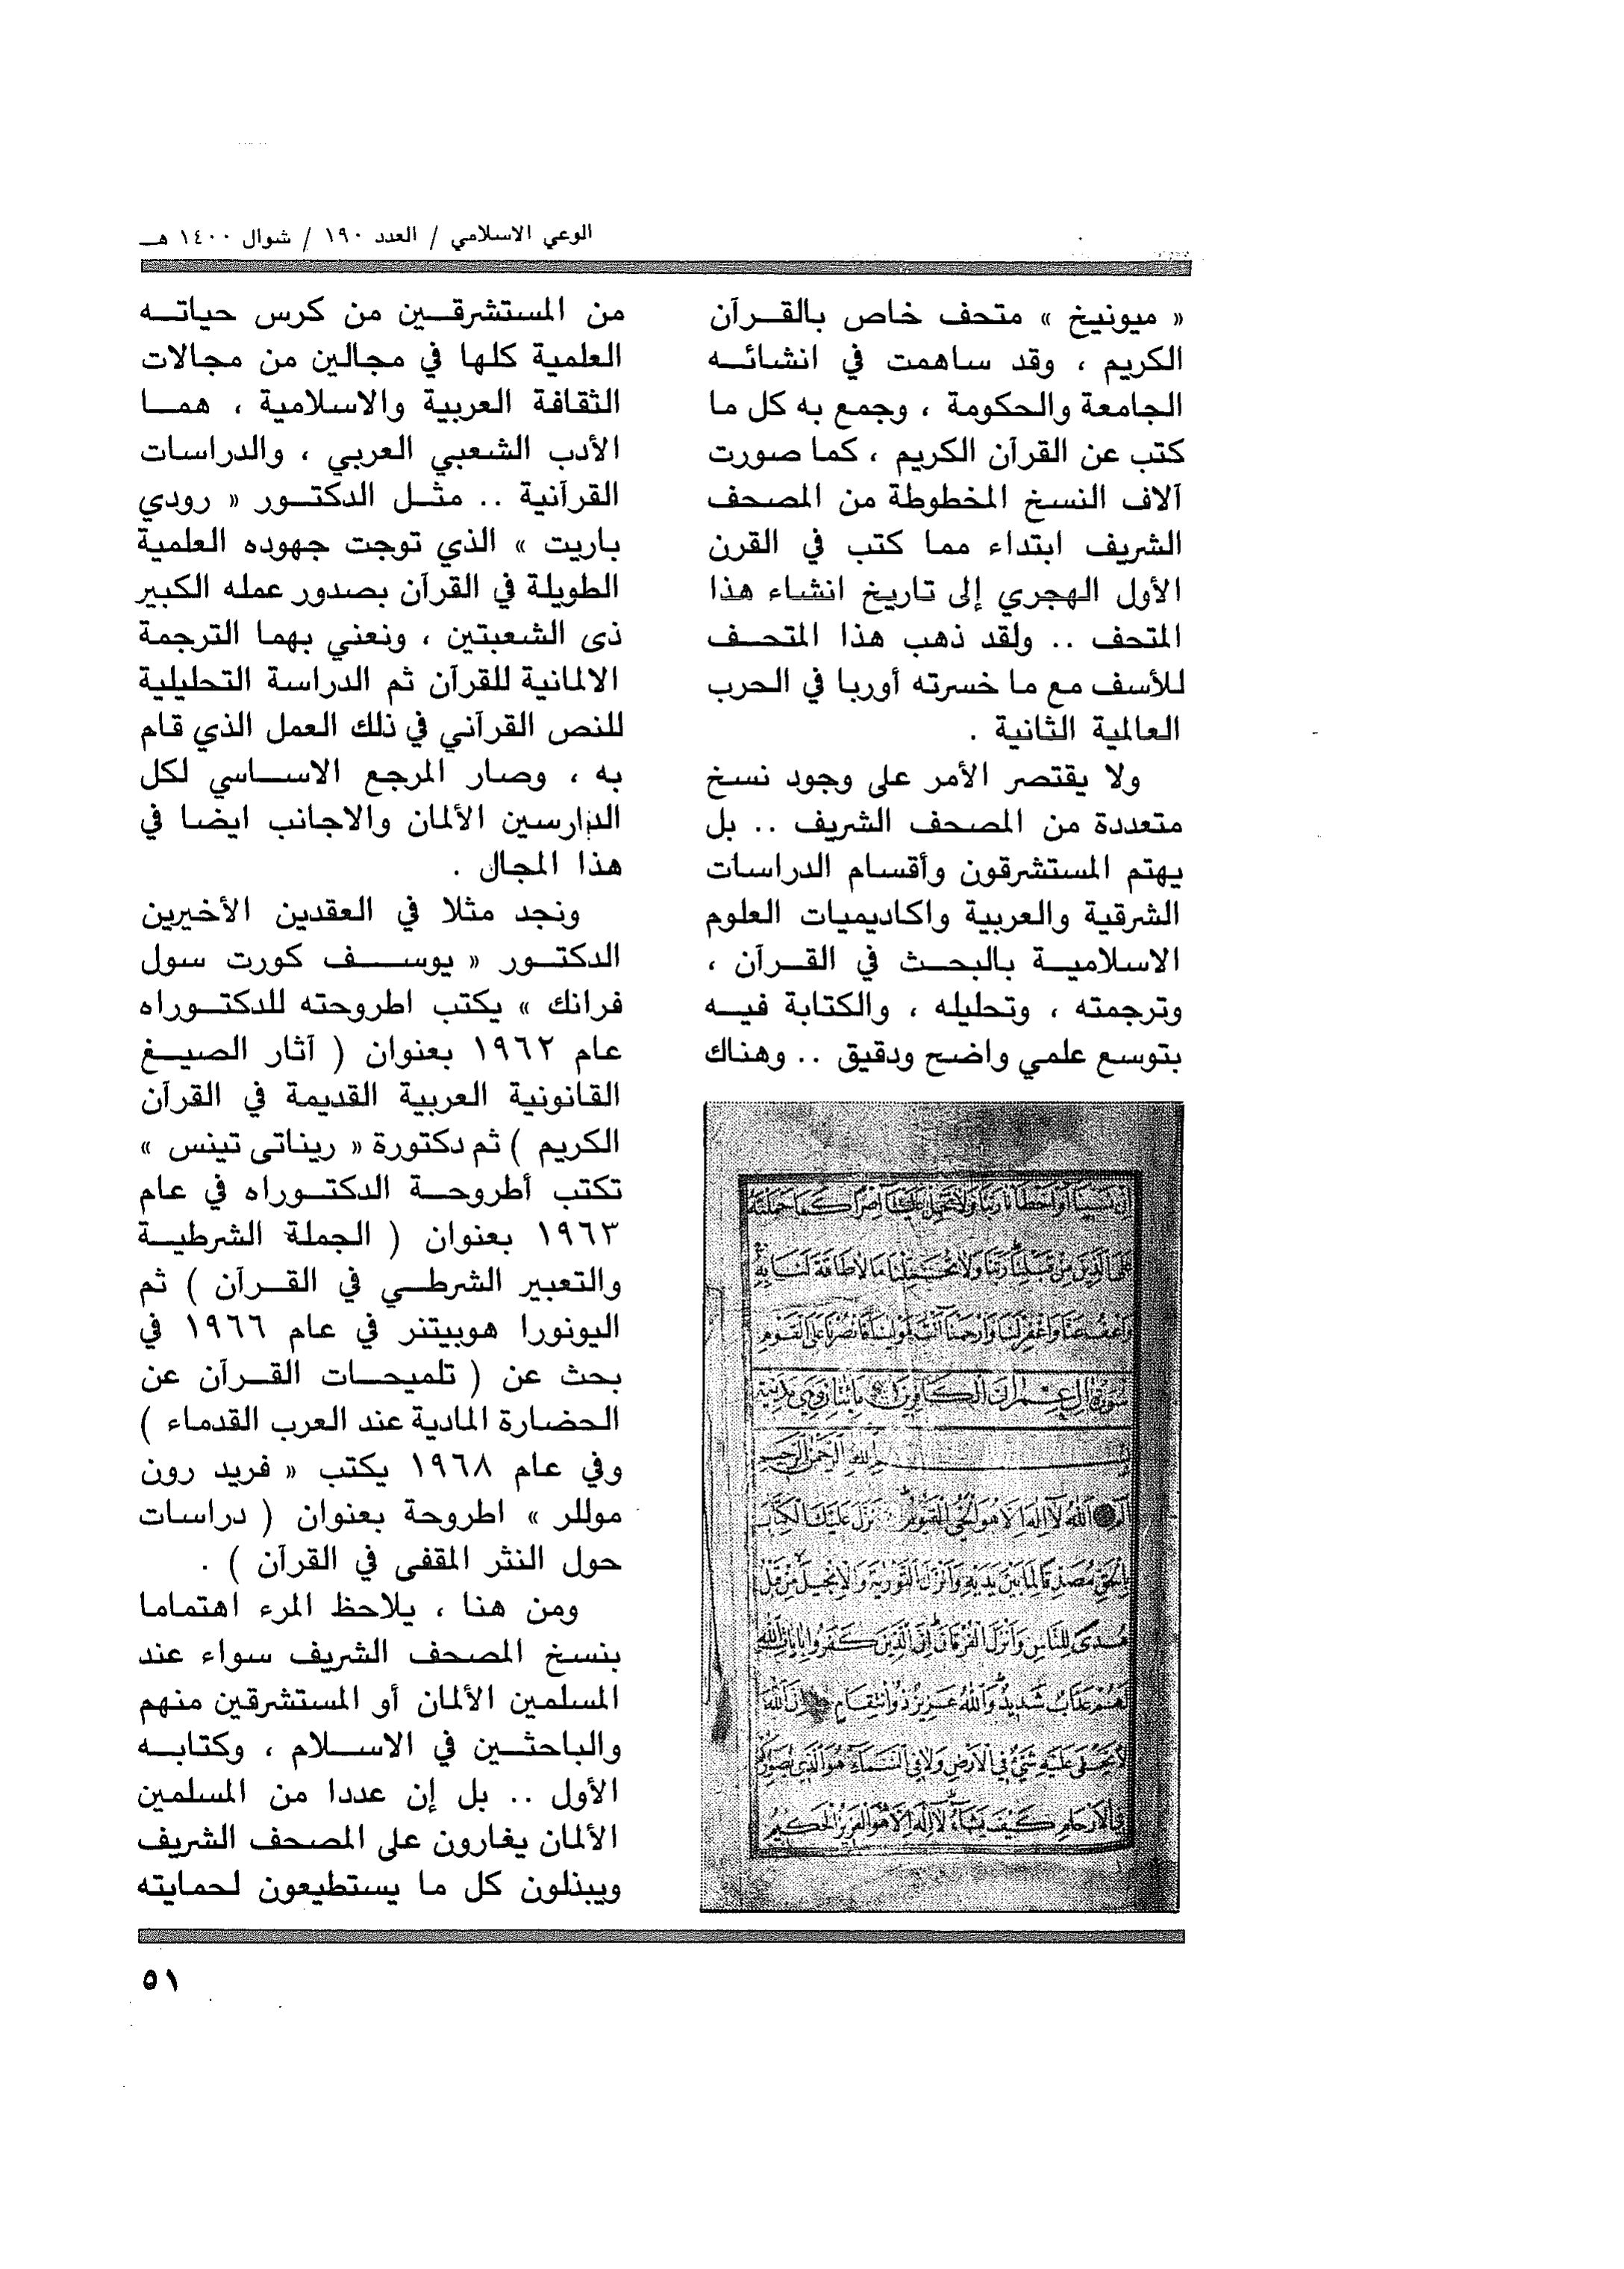 الوعي الاسلامي / العدد ١٩٠ / شوال ١٤٠٠ هـ
« ميونيخ » متحف خاص بالقرآن
الكريم ، وقد ساهمت في انشائه
الجامعة والحكومة ، وجمع به كل ما
كتب عن القرآن الكريم ، كما صورت
آلاف النسخ المخطوطة من المصحف
الشريف ابتداء مما كتب في القرن
الأول الهجري إلى تاريخ انشاء هذا
المتحف .. ولقد ذهب هذا المتحف
للأسف مع ما خسرته أوربا في الحرب
العالمية الثانية .
ولا يقتصر الأمر على وجود نسخ
متعددة من المصحف الشريف .. بل
يهتم المستشرقون وأقسام الدراسات
الشرقية والعربية واكاديميات العلوم
الاسلامية بالبحث في القرآن ،
وترجمته ، وتحليله ، والكتابة فيه
بتوسع علمي واضح ودقيق .. وهناك
ان نسينا أو اخطأنا ربنا ولا تحمل علينا اصرا كما حملته
على الذين من قبلنا ربنا ولا تحملنا ما لا طاقة لنا به
واعف عنا واغفر لنا وارحمنا أنت مولينا فانصرنا على القوم
سورة ال عمران الكافرين مدنية
الله الرحمن الرحيم
الم الله لا اله الا هو الحي القيوم نزل عليك الكتاب
بالحق مصدقا لما بين يديه وأنزل التورية والانجيل من قبل
هدى للناس وأنزل الفرقان ان الذين كفروا بايات الله
لهم عذاب شديد والله عزيز ذو انتقام ان الله
لا يخفى عليه شئ في الارض ولا في السماء هو الذي يصوركم
في الارحام كيف يشاء لا اله الا هو العزيز الحكيم
من المستشرقين من كرس حياته
العلمية كلها في مجالين من مجالات
الثقافة العربية والاسلامية ، هما
الأدب الشعبي العربي ، والدراسات
القرآنية .. مثل الدكتور « رودي
باريت » الذي توجت جهوده العلمية
الطويلة في القرآن بصدور عمله الكبير
ذى الشعبتين ، ونعني بهما الترجمة
الالمانية للقرآن ثم الدراسة التحليلية
للنص القرآني في ذلك العمل الذي قام
به ، وصار المرجع الاساسي لكل
الدارسين الألمان والاجانب ايضا في
هذا المجال .
ونجد مثلا في العقدين الأخيرين
الدكتور « يوسف كورت سول
فرانك » يكتب اطروحته للدكتوراه
عام ١٩٦٢ بعنوان ( آثار الصيغ
القانونية العربية القديمة في القرآن
الكريم ) ثم دكتورة « ريناتى تينس »
تكتب أطروحة الدكتوراه في عام
١٩٦٣ بعنوان ( الجملة الشرطية
والتعبير الشرطي في القرآن ) ثم
اليونورا هوبيتنر في عام ١٩٦٦ في
بحث عن ( تلميحات القرآن عن
الحضارة المادية عند العرب القدماء )
وفي عام ١٩٦٨ يكتب « فريد رون
موللر » اطروحة بعنوان ( دراسات
حول النثر المقفى في القرآن ) .
ومن هنا ، يلاحظ المرء اهتماما
بنسخ المصحف الشريف سواء عند
المسلمين الألمان أو المستشرقين منهم
والباحثين في الاسلام ، وكتابه
الأول .. بل إن عددا من المسلمين
الألمان يغارون على المصحف الشريف
ويبذلون كل ما يستطيعون لحمايته
٥١